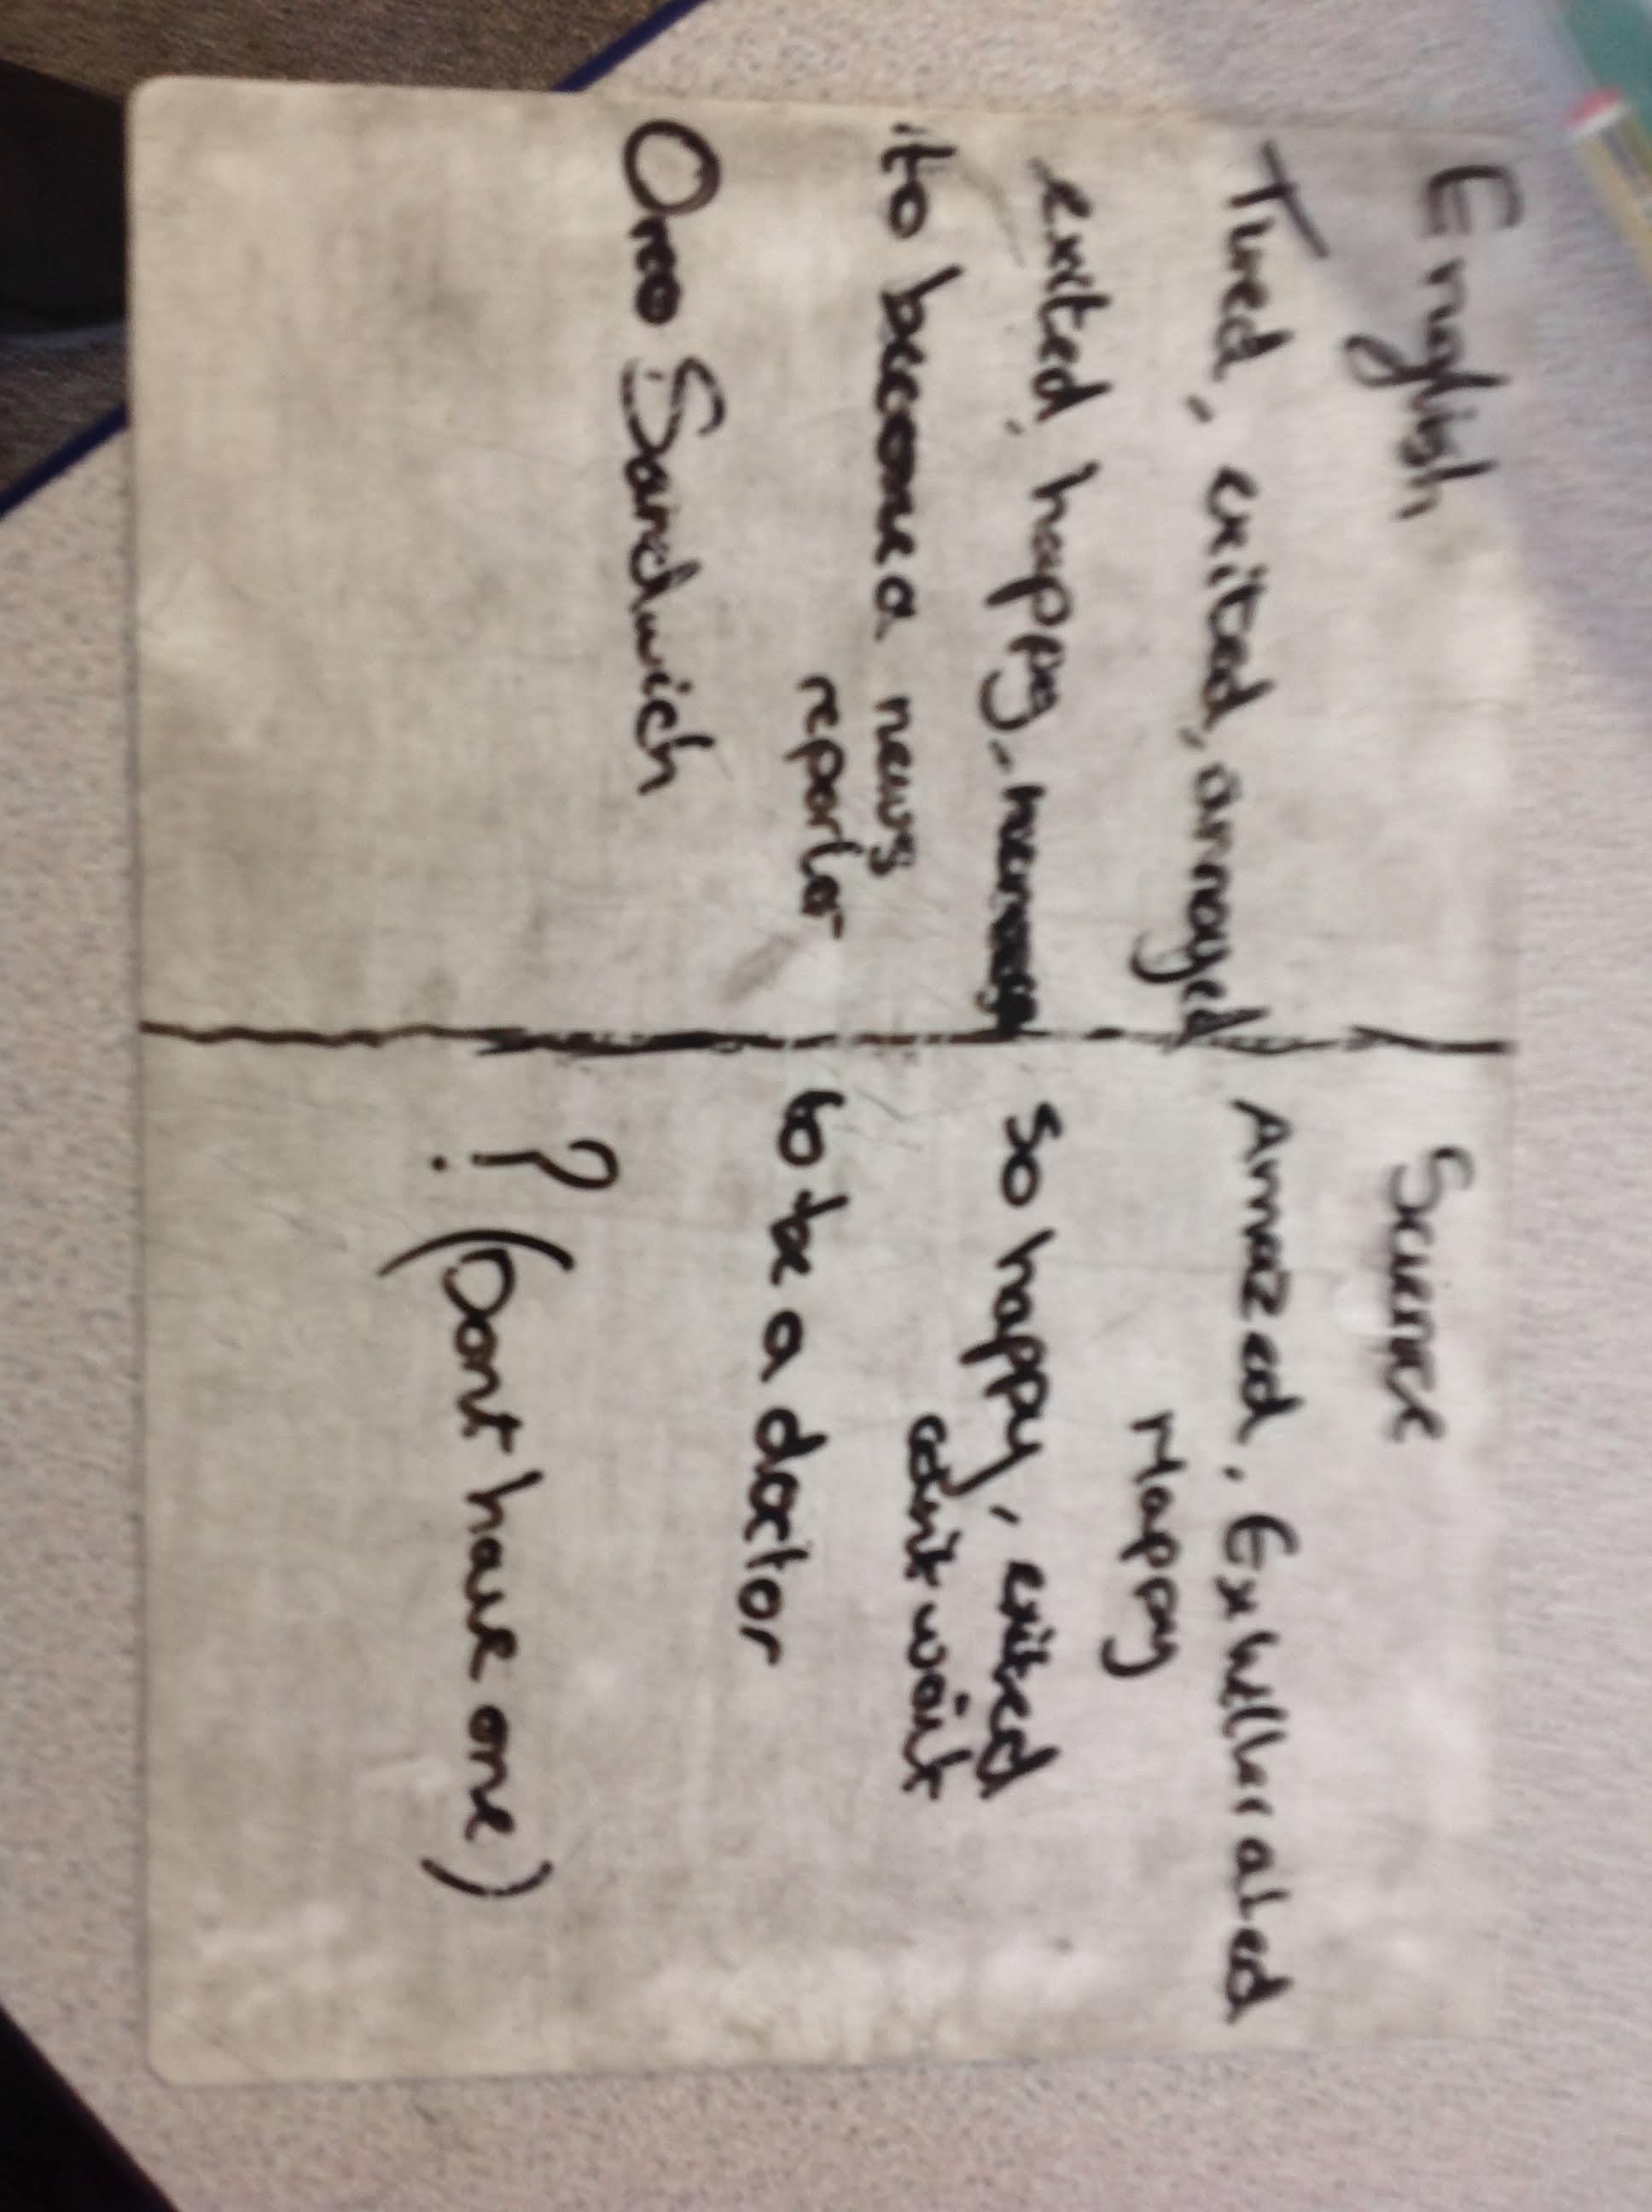 English
Tired, exited, annoyed
exited, happy, nervous
to become a news
reporter
Oreo Sandwich
Science
Amazed, Exhillerated
Happy
So happy, exited
can't wait
to be a doctor
? (Dont have one)